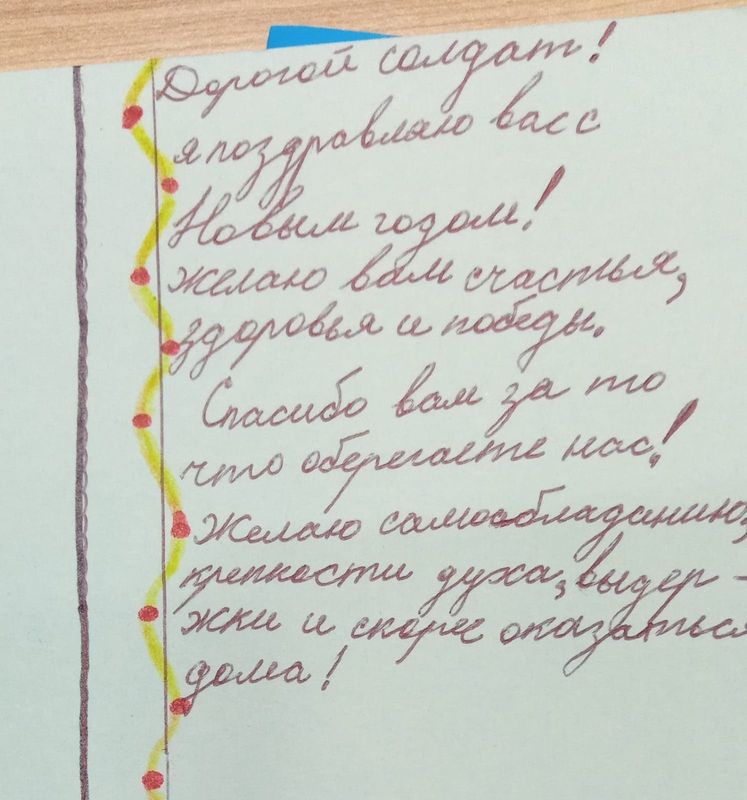 Дорогой солдат!
я поздравлаю васс
Новым годом!
желаю вам счастья,
здоровья и победы.
Спасибо вам за то
что оберегаете нас!
Желаю самообладанию,
крепкости духа, выдер-
жки и скорее оказаться
дома!